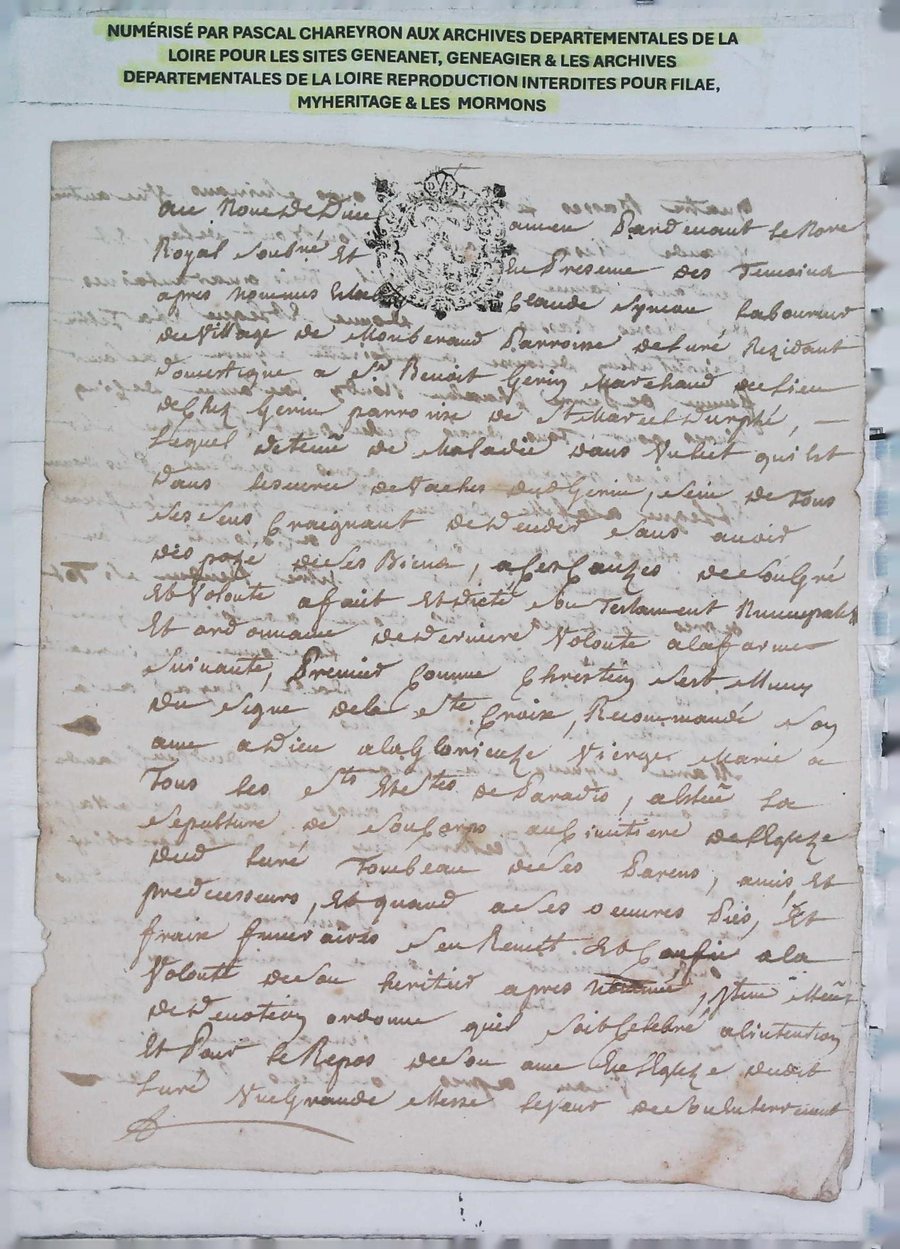 NUMÉRISÉ PAR PASCAL CHAREYRON AUX ARCHIVES DEPARTEMENTALES DE LA
LOIRE POUR LES SITES GENEANET, GENEAGIER & LES ARCHIVES
DEPARTEMENTALES DE LA LOIRE REPRODUCTION INTERDITES POUR FILAE,
MYHERITAGE & LES MORMONS
au Nom de Dieu amen Pardevant le Nore
Royal Soubné Et En Presence des Temoins
apres nommés Claude Laboureur
du Village de Parroisse de Luré Rezidant
Domestique a Sr Benoit Genin Marchand du Lieu
de Chez Genin parroisse de St Marcel Durphé,
Lequel detenu de Maladie dans Un Lict qui Est
dans de Vaches dud Genin, Sain de Tous
Ses Sens Craignant de deceder Sans avoir
dispozé de Ses Biens, a Ces Cauzes de Son Gré
Et Volonté a fait Et dicté Son Testament Nuncupatif
Et ordonnance de derniere Volonté a la forme
Suivante, Premier Comme Chrestien S'est Muny
du Signe de la Ste Croix, Recommandé Son
ame a Dieu a la Glorieuze Vierge Marie a
Tous les Sts Et Stes de Paradis, a Esleu La
Sepulture de Son Corps au Cimitiere de L'Eglize
dud Luré Tombeau de Ses Parens, amis, Et
predecesseurs, Et quand a Ses oeuvres Pies, Et
fraix funeraires S'en Remet Et Confie a la
Volonté de Son heritier apres nommé, Meu
de devotion ordonne quil Soit Celebré a l'intention
Et Pour le Repos de Son ame En L'Eglize dudit
Luré Une Grande Messe le Jour de Son Enterrement